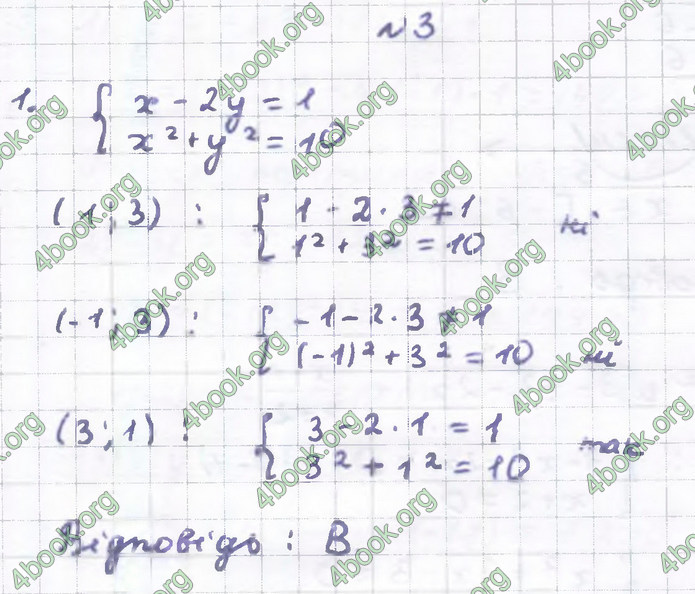 № 3
1. { x - 2y = 1
x² + y² = 10
(1; 3) : { 1 - 2 · 3 ≠ 1
1² + 3² = 10 ні
(-1; 3) : { -1 - 2 · 3 ≠ 1
(-1)² + 3² = 10 ні
(3; 1) : { 3 - 2 · 1 = 1
3² + 1² = 10 так
Відповідь : В
4book.org